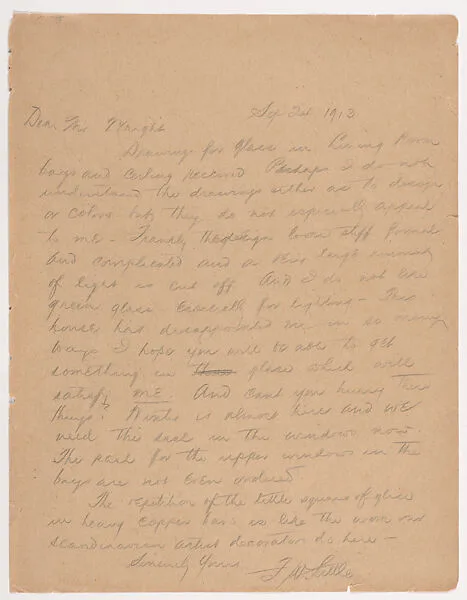 Sep 20 1913
Dear Mr Wright
Drawings for glass in Living Room
bays and ceiling received Perhaps I do not
understand the drawings either as to design
or colors but they do not especially appeal
to me – Frankly the design looks stiff formal
and complicated and a very large amount
of light is cut off And I do not like
green glass for lighting – This
house has disappointed me in so many
ways I hope you will be able to get
something in glass which will
satisfy me. And can't you hurry these
things? Winter is almost here and we
need the in the windows now.
The for the upper windows in the
bays are not even ordered
The repetition of the little squares of glass
in heavy copper bars is like the work our
Scandinavian artist decorators do here –
Sincerely Yours
F W Little